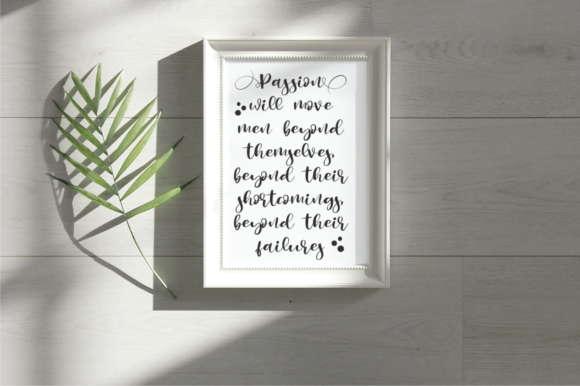 Passion
will move
men beyond
themselves,
beyond their
shortcomings,
beyond their
failures